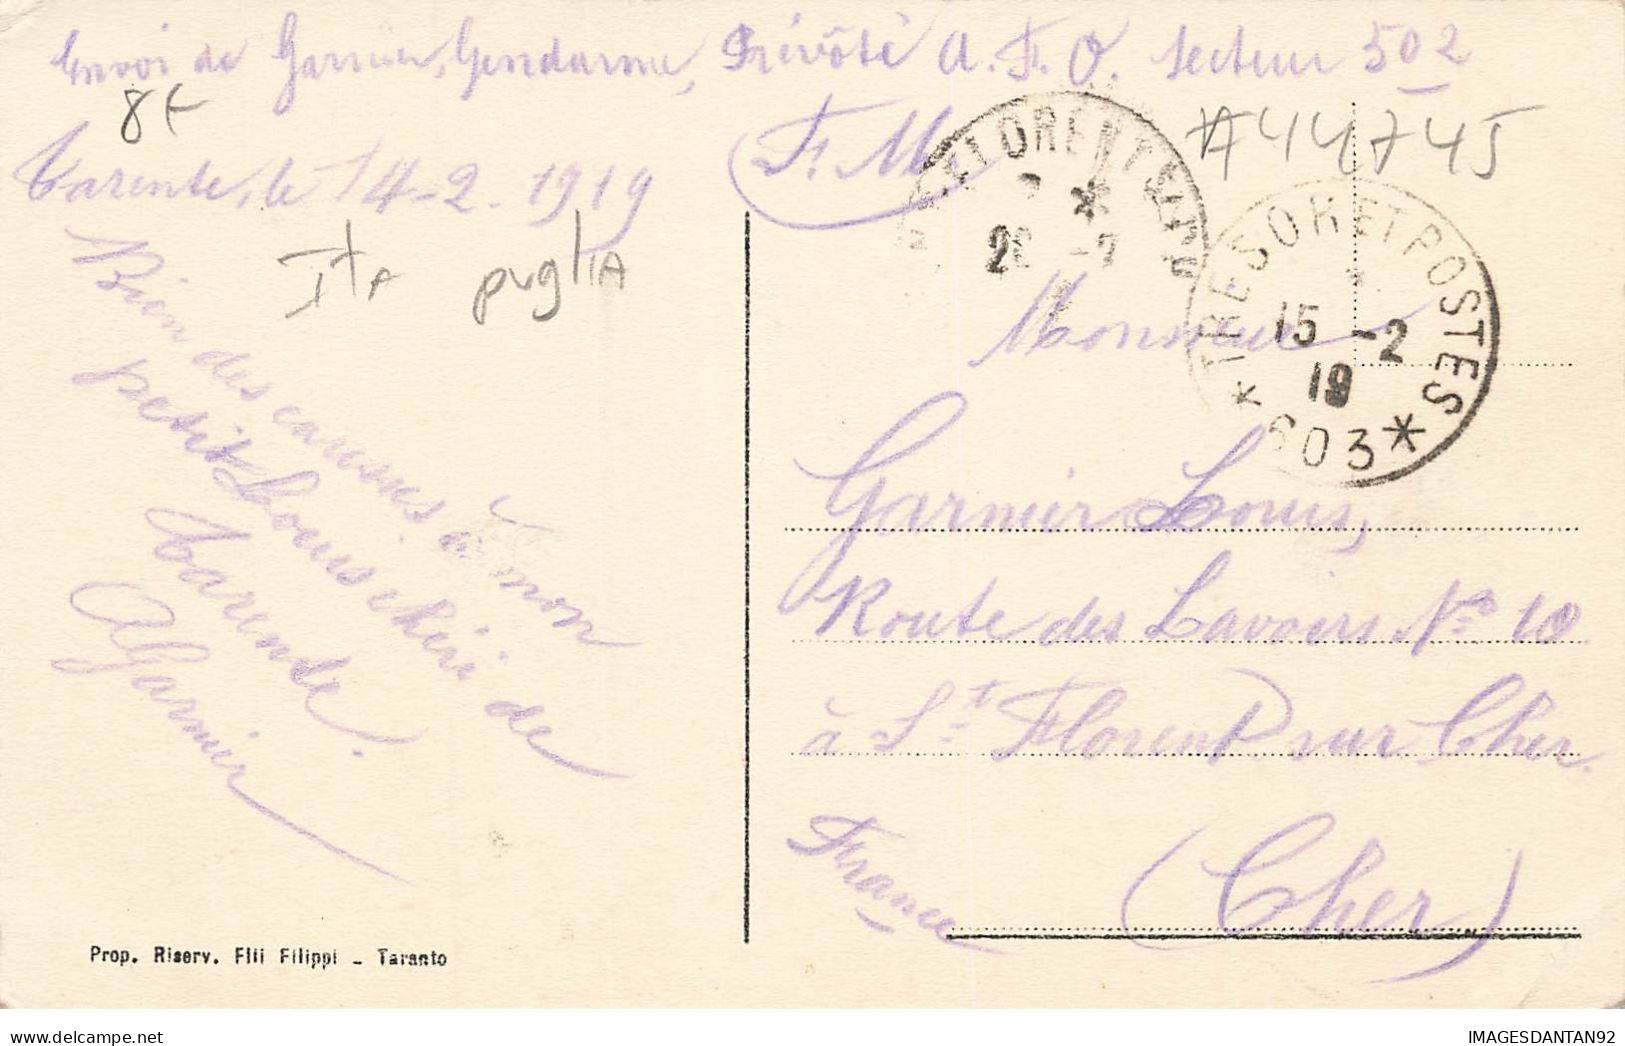 Envoi de Garnier, Gendarme, Prévôté A. F. O. Secteur 502
8€
Tarente, le 14-2-1919
F. M.
#44745
ITA puglia
ST FLORENT
*
TRESOR ET POSTES
15 -2
19
* 603 *
Bien des caresses à mon
petit Louis chéri de
Tarente.
AGarnier
Monsieur
Garnier Louis,
Route des Lavoirs No 10
à St Florent sur Cher.
(Cher)
France
Prop. Riserv. Flli Filippi - Taranto
https://www.delcampe.net
IMAGESDANTAN92